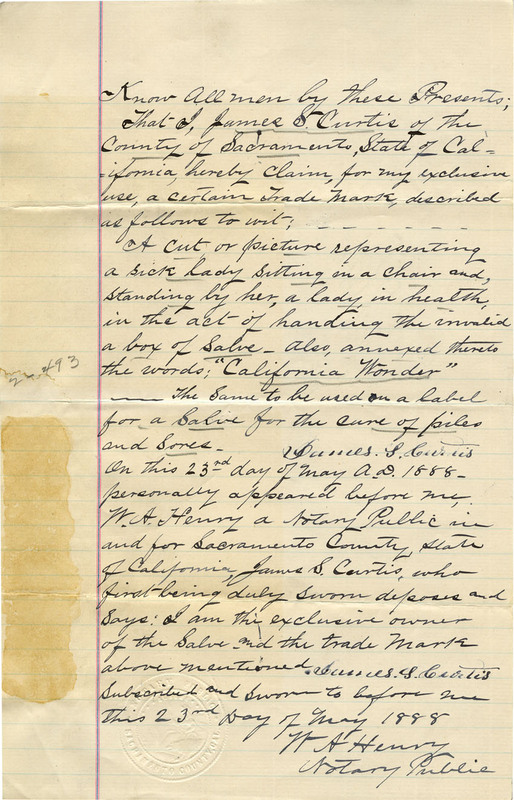 Know All men by these Presents;
That I, James S. Curtis of the
County of Sacramento, State of Cal-
-ifornia, hereby claim, for my exclusive
use, a certain Trade Mark, described
as follows to wit;
A cut or picture representing
a sick lady sitting in a chair and,
standing by her, a lady in health,
in the act of handing the invalid
a box of Salve - Also, annexed thereto
the words; "California Wonder"
The Same to be used on a label
for a Salve for the cure of piles
and Sores -
James. S. Curtis
On this 23rd day of May A.D. 1888 -
personally appeared before me,
W. A. Henry a Notary Public in
and for Sacramento County, State
of California, James S. Curtis, who
first being duly sworn deposes and
Says: I am the exclusive owner
of the Salve and the trade Mark
above mentioned
James. S. Curtis
Subscribed and Sworn to before me
this 23rd Day of May 1888
W A Henry
Notary Public
493